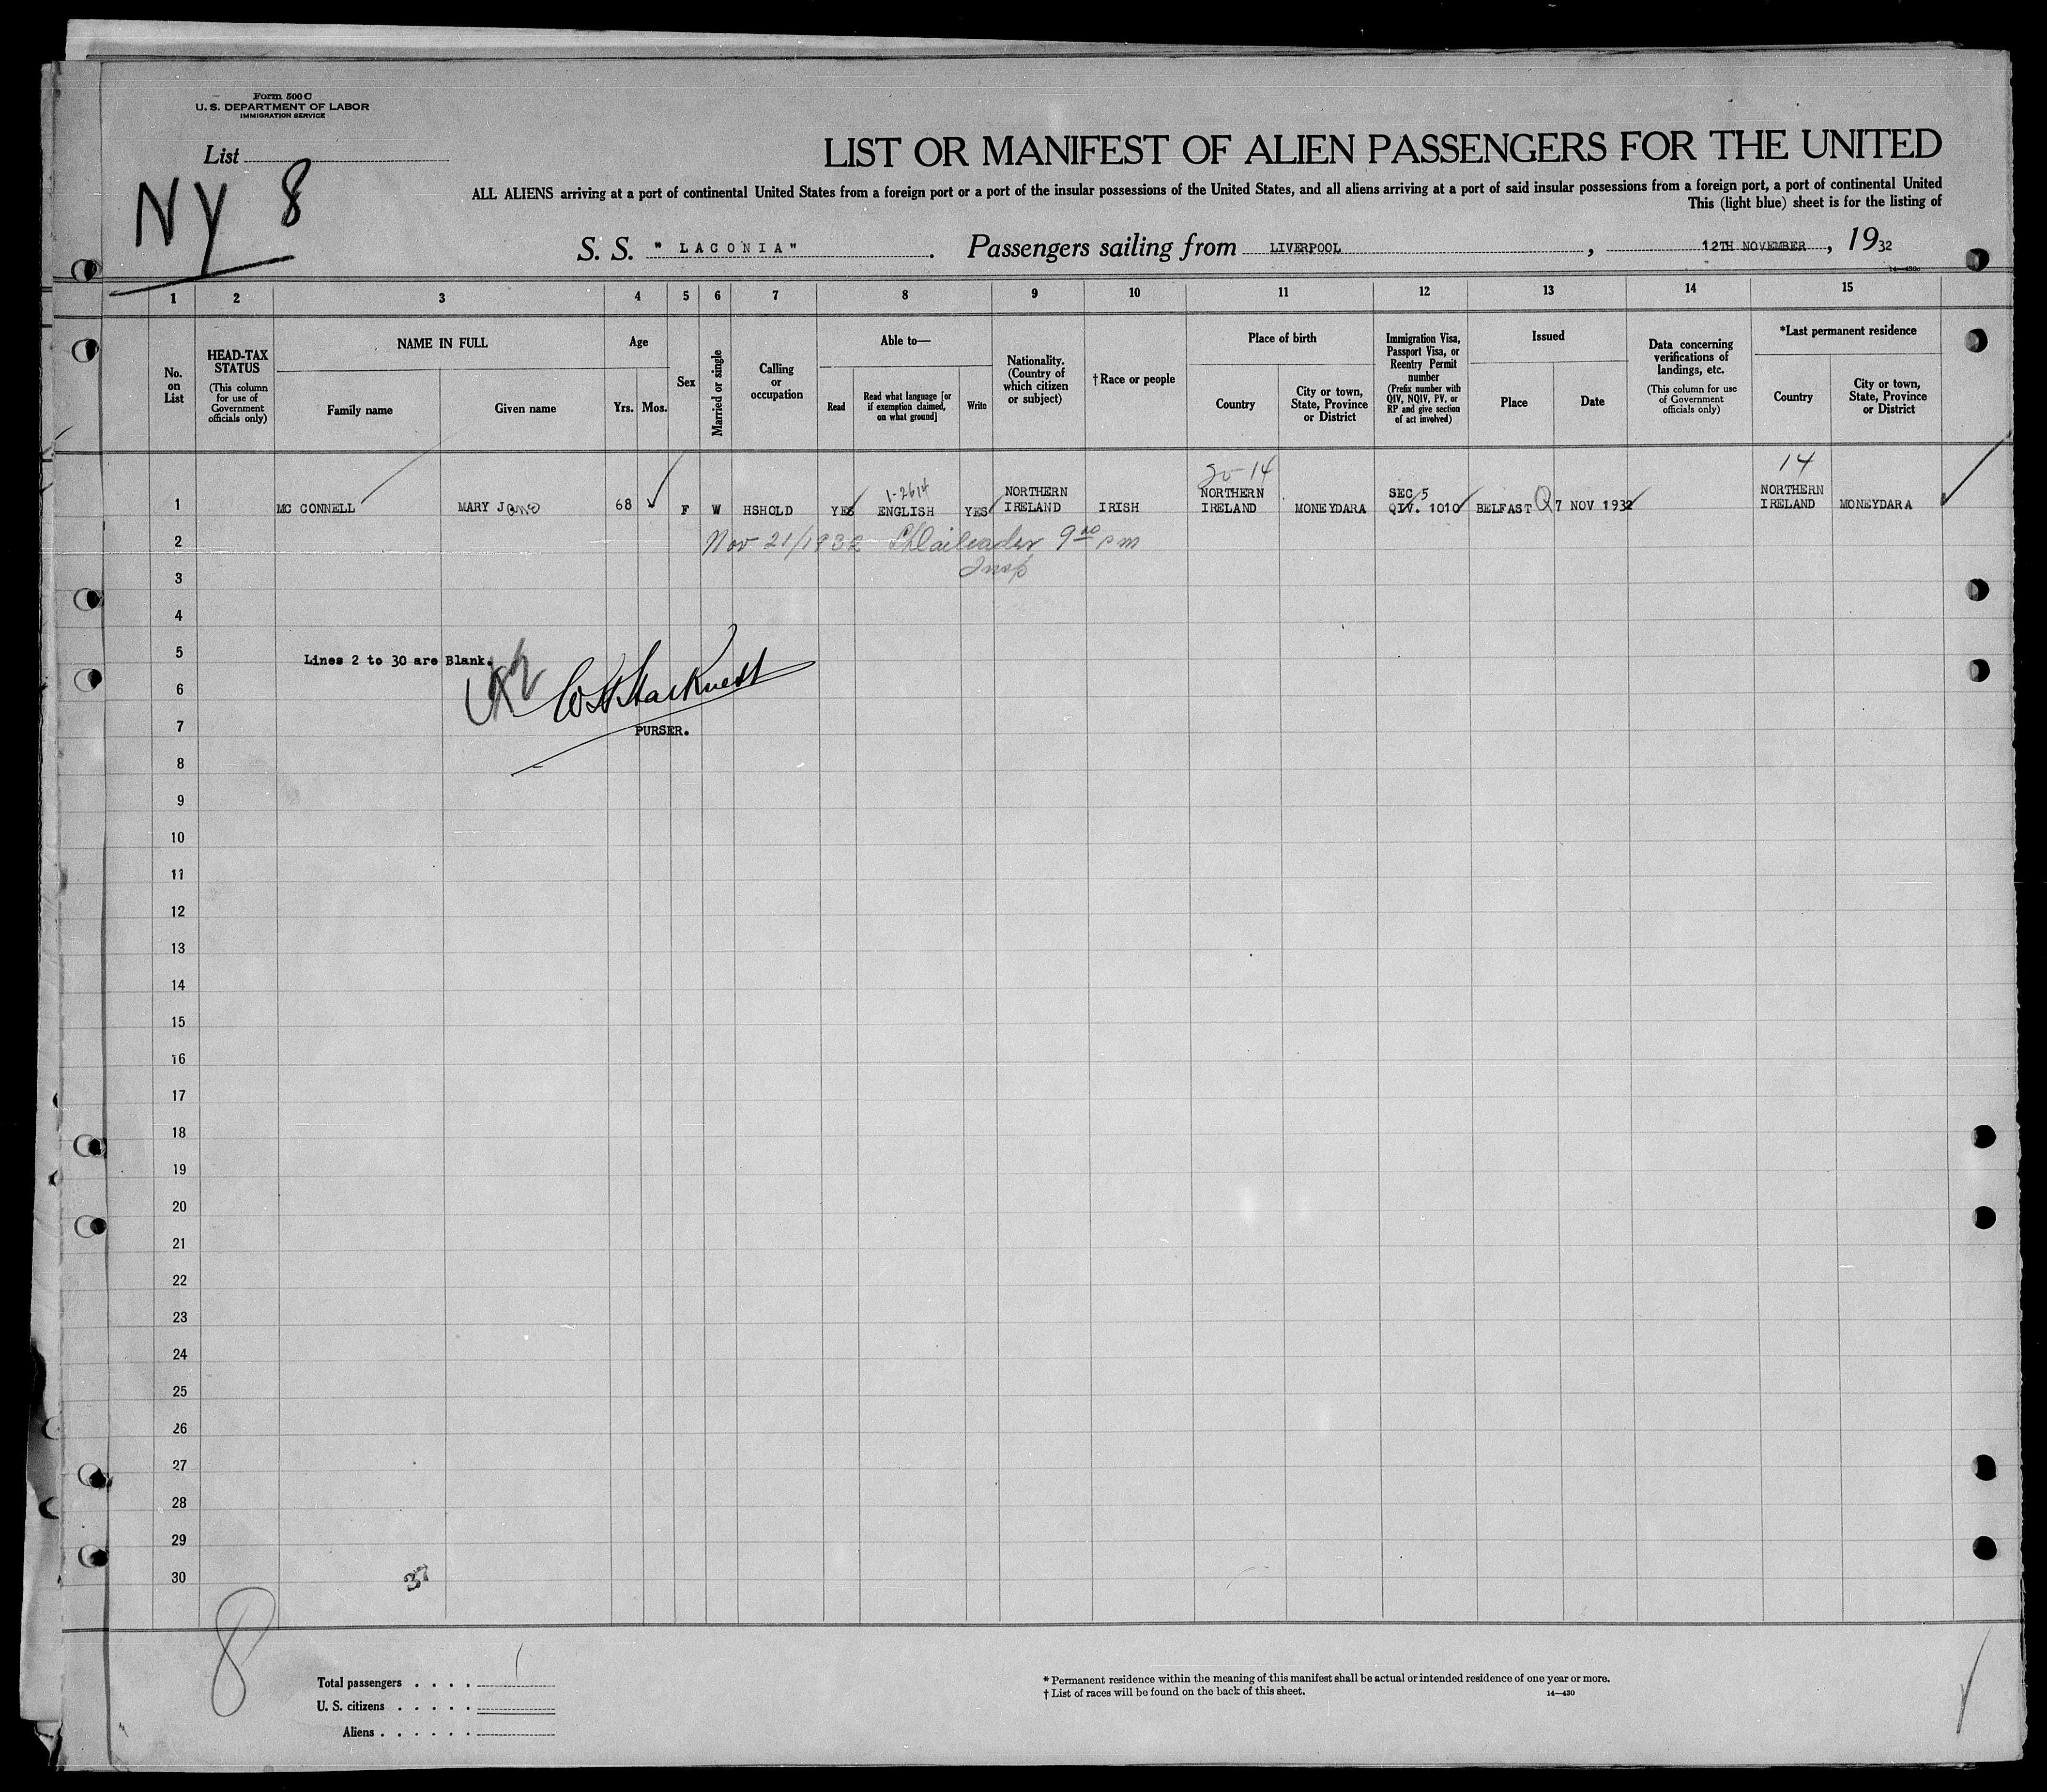 Form 500 C
U. S. DEPARTMENT OF LABOR
IMMIGRATION SERVICE
List
NY 8
LIST OR MANIFEST OF ALIEN PASSENGERS FOR THE UNITED
ALL ALIENS arriving at a port of continental United States from a foreign port or a port of the insular possessions of the United States, and all aliens arriving at a port of said insular possessions from a foreign port, a port of continental United
This (light blue) sheet is for the listing of
S. S. " LACONIA" . Passengers sailing from LIVERPOOL , 12TH NOVEMBER , 19 32
14—430c
1 2 3 4 5 6 7 8 9 10 11 12 13 14 15
No. on List
HEAD-TAX STATUS
(This column for use of Government officials only)
NAME IN FULL
Family name
Given name
Age
Yrs.
Mos.
Sex
Married or single
Calling or occupation
Able to—
Read
Read what language [or if exemption claimed, on what ground]
Write
Nationality. (Country of which citizen or subject)
†Race or people
Place of birth
Country
City or town, State, Province or District
Immigration Visa, Passport Visa, or Reentry Permit number
(Prefix number with QIV, NQIV, PV, or RP and give section of act involved)
Issued
Place
Date
Data concerning verifications of landings, etc.
(This column for use of Government officials only)
*Last permanent residence
Country
City or town, State, Province or District
1-2614 20-14 14
1 MC CONNELL MARY Jane 68 F W HSHOLD YES ENGLISH YES NORTHERN IRELAND IRISH NORTHERN IRELAND MONEYDARA SEC 5 QIV. 1010 BELFAST Q 7 NOV 1932 NORTHERN IRELAND MONEYDARA
2 Nov 21/1932 9 00 pm
3 Insp
4
5
Lines 2 to 30 are Blank.
6
7 PURSER.
8
9
10
11
12
13
14
15
16
17
18
19
20
21
22
23
24
25
26
27
28
29
30
37
8
Total passengers . . . . 1
U. S. citizens . . . . .
Aliens . . . . . .
* Permanent residence within the meaning of this manifest shall be actual or intended residence of one year or more.
† List of races will be found on the back of this sheet.
14—430